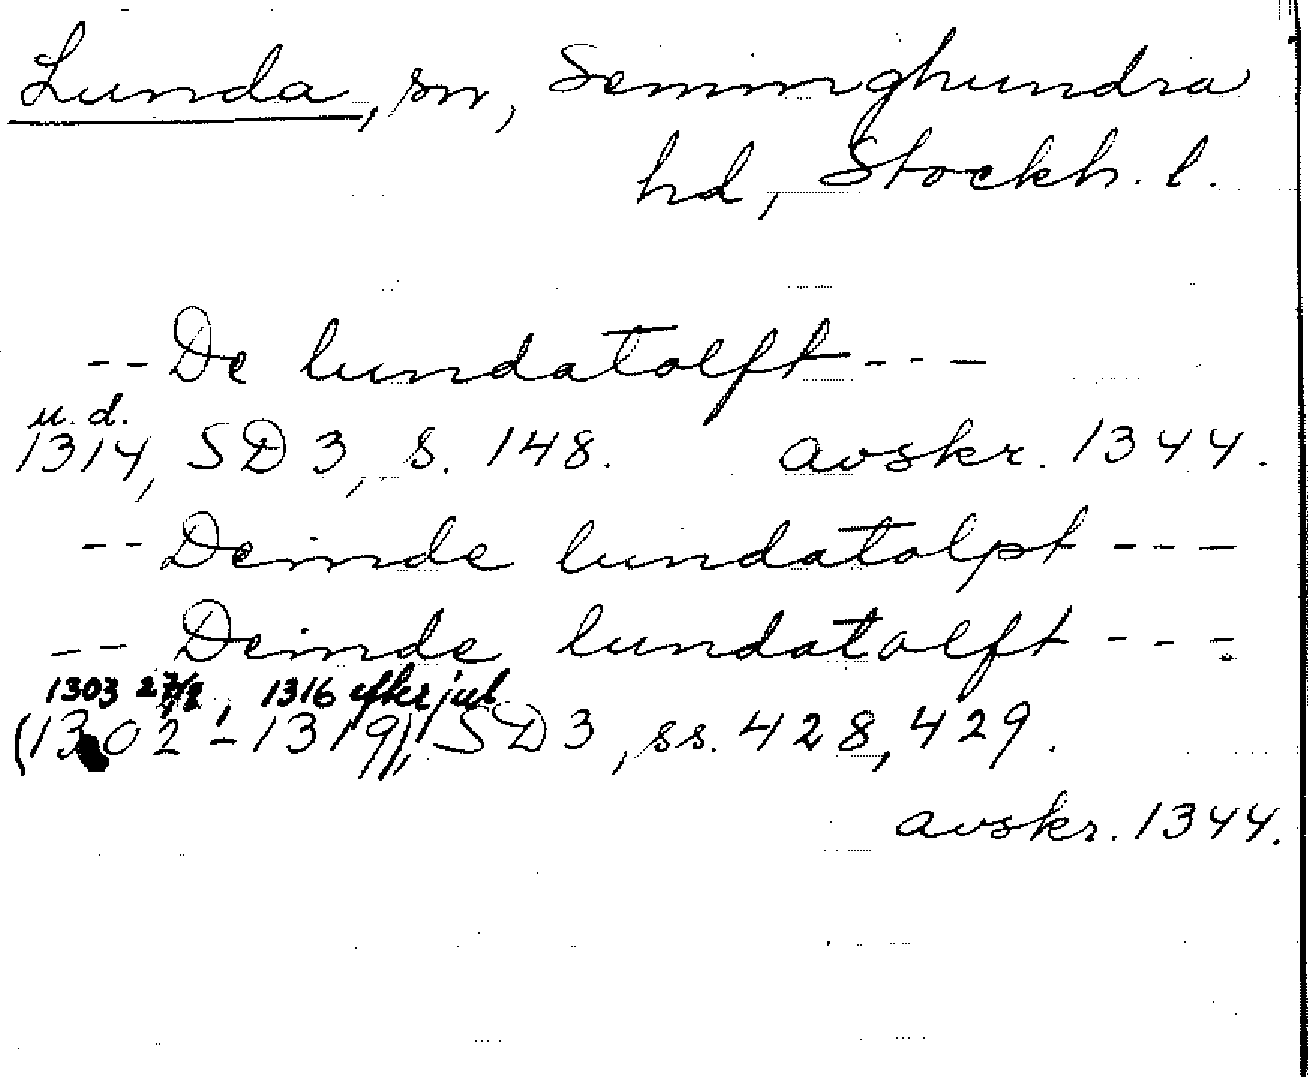 Lunda, sn, Seminghundra
hd, Stockh. l.
-- De lundatolft ---
u. d.
1314, SD 3, s. 148. avskr. 1344.
-- Deinde lundatolpt ---
-- Deinde lundatolft ---
1303 27/2, 1316 efter jul
(1302 - 1319), SD 3, ss. 428, 429.
avskr. 1344.